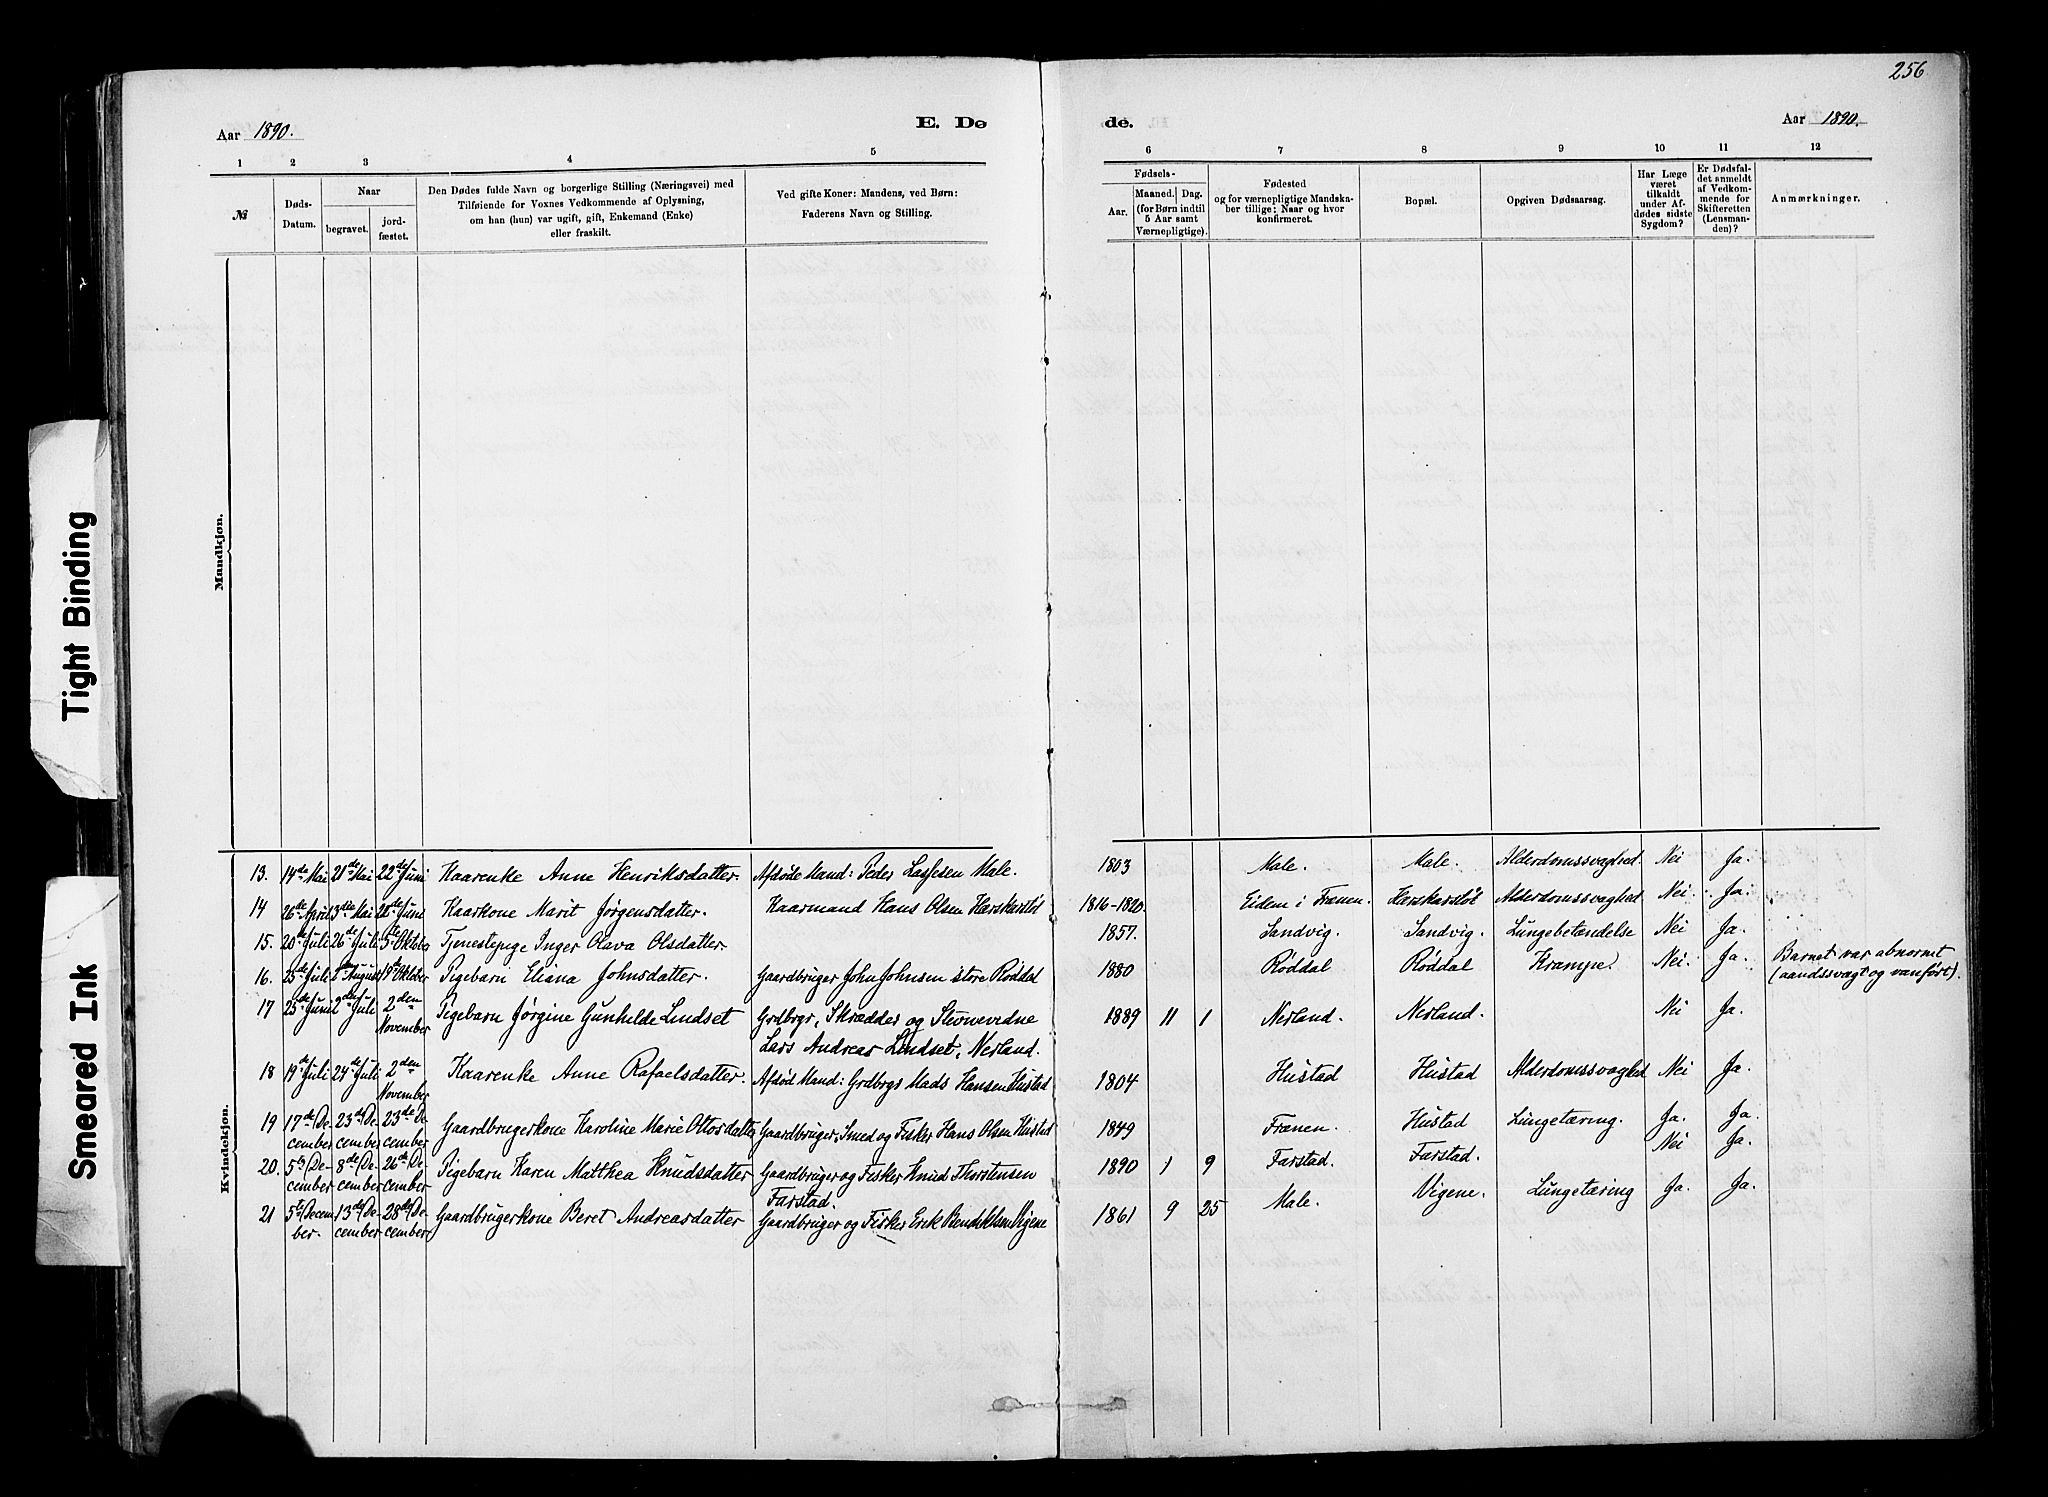 256
Aar 1890.
E. Dø
de.
Aar 1890.
1 2 3 4 5 6 7 8 9 10 11 12
№
Døds-
Datum.
Naar
begravet.
jord-
fæstet.
Den Dødes fulde Navn og borgerlige Stilling (Næringsvei) med
Tilføiende for Voxnes Vedkommende af Oplysning,
om han (hun) var ugift, gift, Enkemand (Enke)
eller fraskilt.
Ved gifte Koner: Mandens, ved Børn:
Faderens Navn og Stilling.
Fødsels-
Aar.
Maaned. Dag.
(for Børn indtil
5 Aar samt
Værnepligtige).
Fødested
og for værnepligtige Mandska-
ber tillige: Naar og hvor
konfirmeret.
Bopæl.
Opgiven Dødsaarsag.
Har Læge
været
tilkaldt
under Af-
dødes sidste
Sygdom?
Er Dødsfal-
det anmeldt
af Vedkom-
mende for
Skifteretten
(Lensman-
den)?
Anmærkninger.
Mandkjøn.
Kvindekjøn.
13. 14de Mai 21de Mai 22de Juni Kaarenke Anne Henriksdatter. Afdøde Mand: Peder Lassesen Male. 1803 Male. Male. Alderdomssvaghed. Nei Ja.
14 26de April 3die Mai 22de Juni Kaarkone Marit Jørgensdatter. Kaarmand Hans Olsen Herskerstöl 1816-1820. Eidem i Frænen. Herskerstöl Alderdomssvaghed Nei. Ja.
15. 20de Juli 26de Juli 5te Oktbr Tjenestepige Inger Olava Olsdatter. 1857. Sandvig. Sandvig. Lungebetændelse Nei Ja.
16. 25de Juli August Oktober Pigebarn Eliana Johnsdatter. Gaardbruger John Johnsen store Röddal 1880 Röddal Röddal Krampe. Nei. Ja. Barnet var abnormt
(aandssvagt og vanført).
17 25de Juni 2den Juli 2den
November Pigebarn Jørgine Gunhilde Lindset Grdbrgr, Skrædder og Stevnevidne
Lars Andreas Lindset, Nerland. 1889 11 1 Nerland. Nerland. Nei Ja.
18 19de Juli 24de Juli 2den
November Kaarenke Anne Rafaelsdatter. Afdød Mand: Grdbrgr Mads Hansen Hustad 1804 Hustad Hustad Alderdomssvaghed Nei Ja.
19 17de De-
cember 23de De-
cember 23de De-
cember Gaardbrugerkone Karoline Marie Ottosdatter Gaardbruger, Smed og Fisker Hans Olsen Hustad 1849 Frænen. Hustad Lungetæring. Ja. Ja.
20. 5te De-
cember 8de De-
cember 26de De-
cember Pigebarn Karen Matthea Knudsdatter Gaardbruger og Fisker Knud Thorstensen
Farstad. 1890 1 9 Farstad. Farstad. Nei Ja.
21 5te Decem-
ber. 13de De-
cember 28de De-
cember Gaardbrugerkone Beret Andreasdatter Gaardbruger og Fisker Erik Bendiktsen Vigene 1861 9 25 Male. Vigene. Lungetæring Ja. Ja.
Tight Binding
Smeared Ink